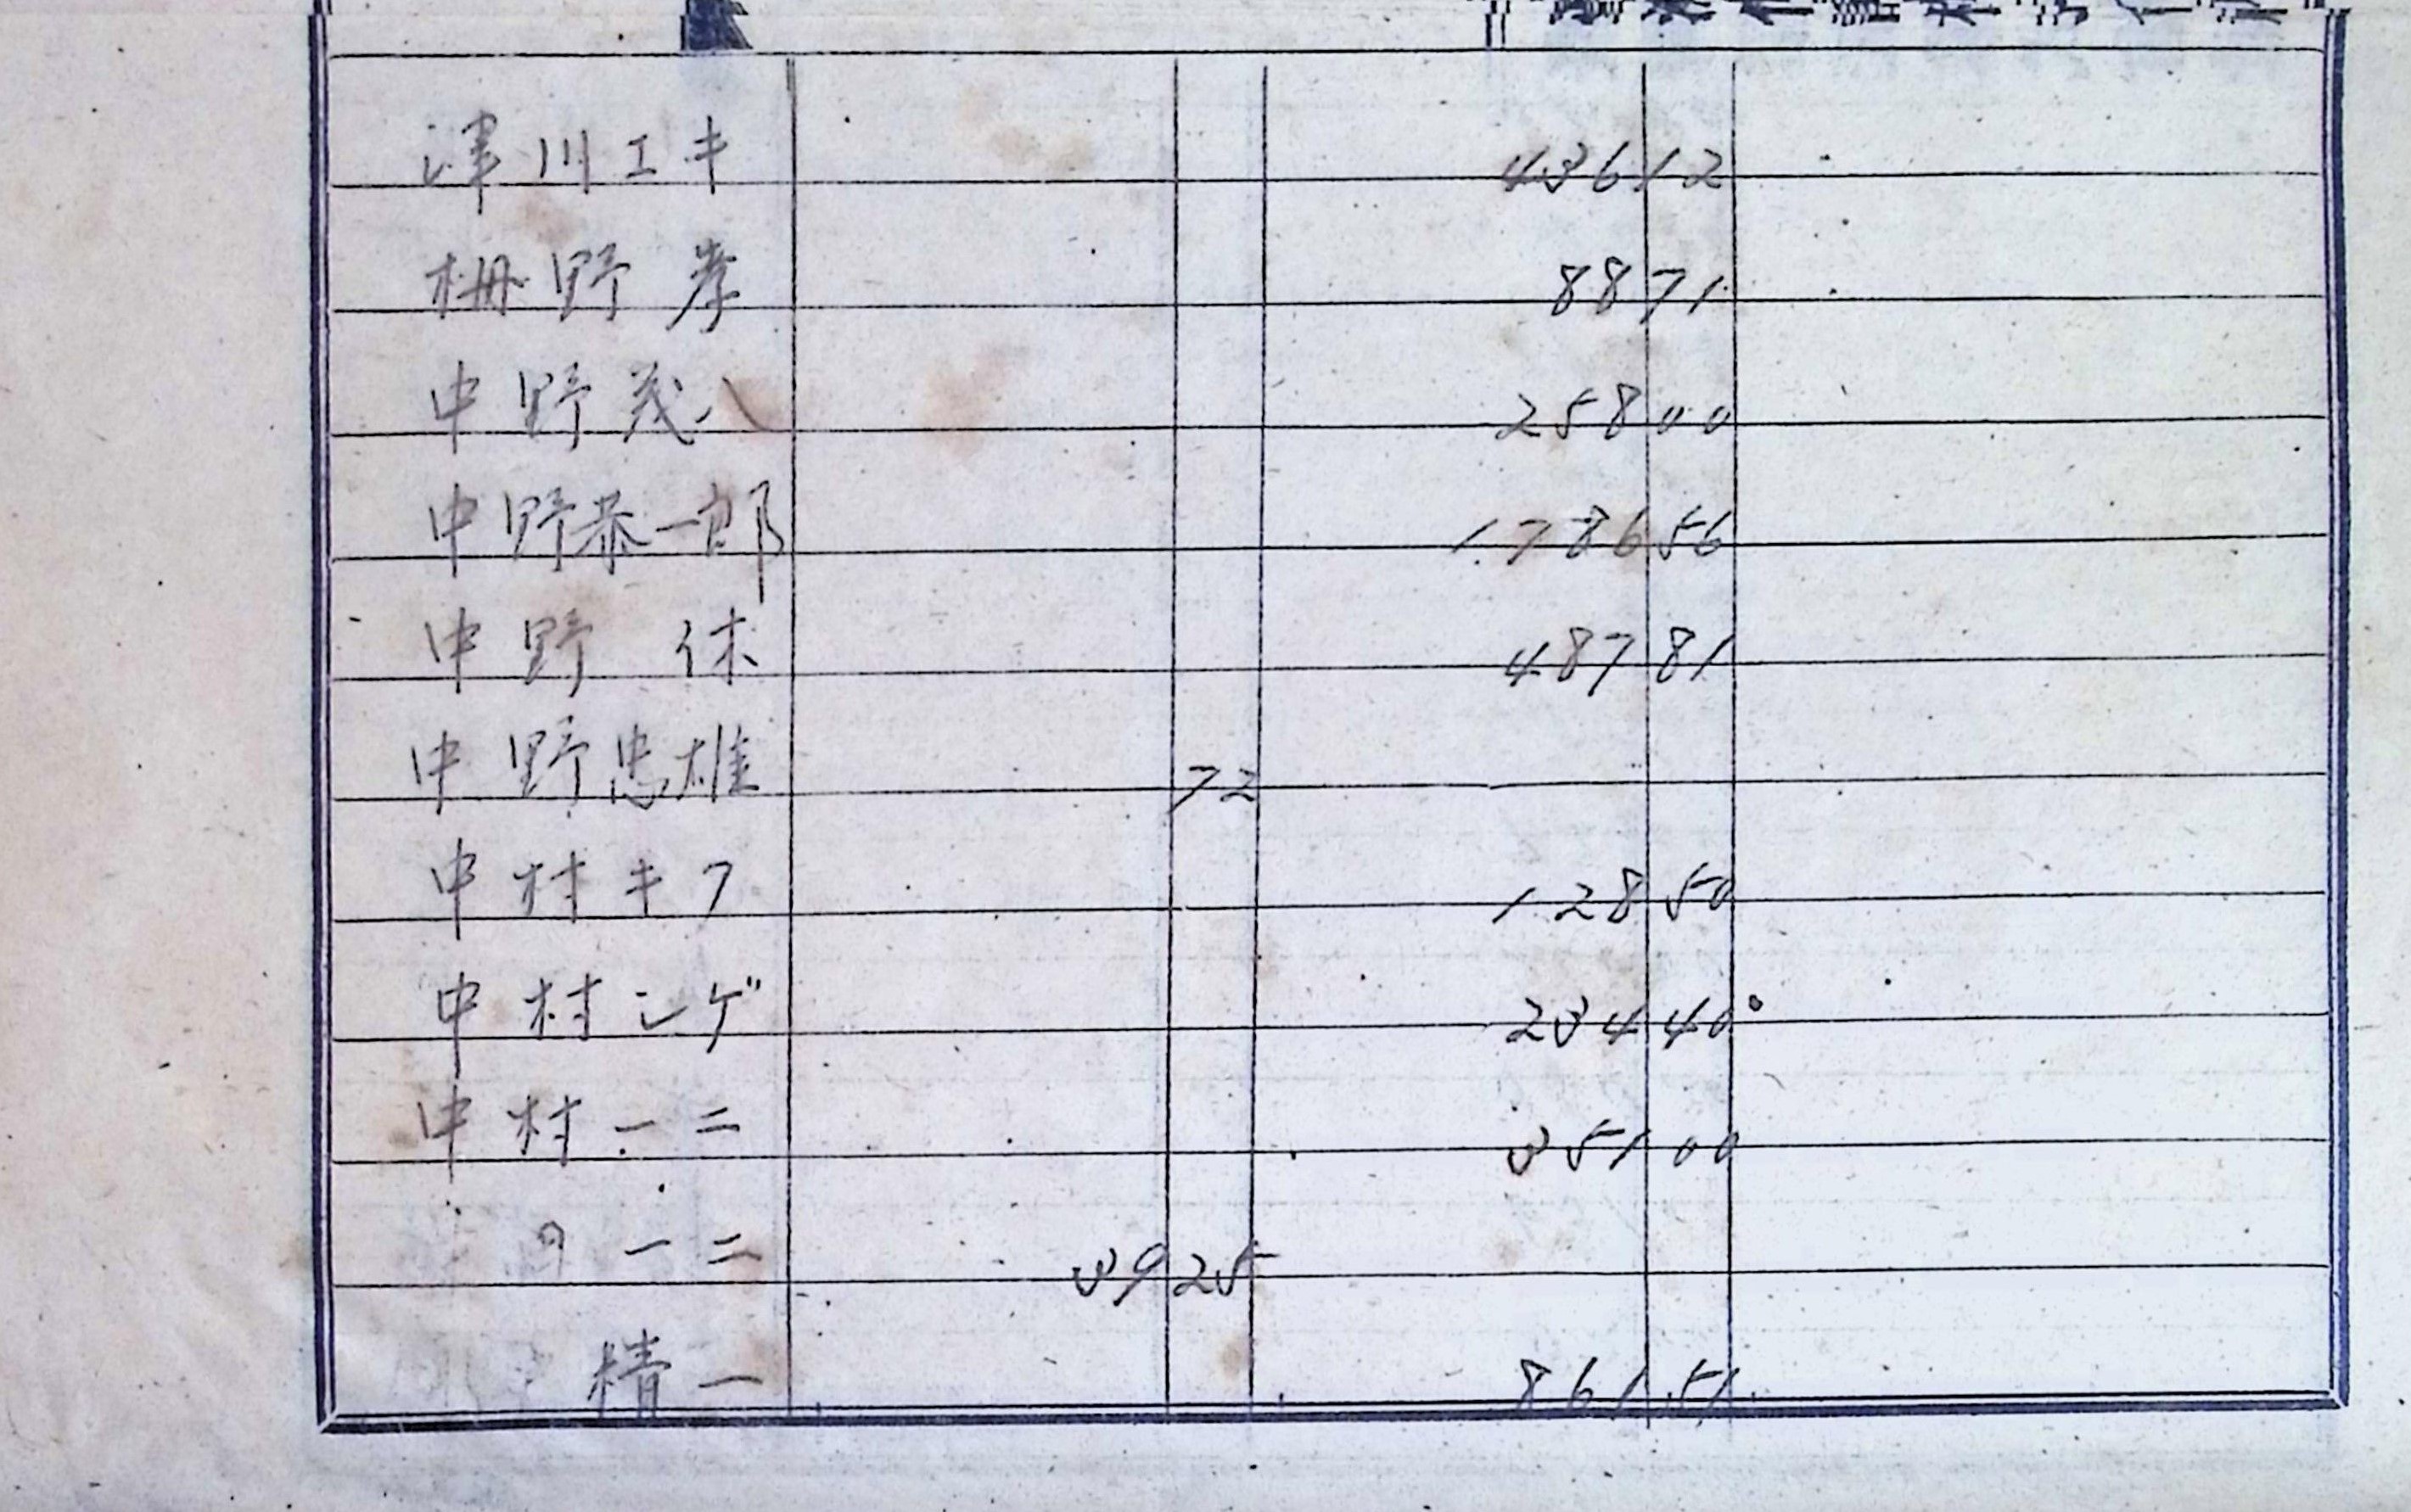 津川エキ 436 12
栅野孝 88 71
中野茂八 258 00
中野恭一郎 1.786 56
中野休 487 81
中野忠雄 72
中村キフ 128 50
中村シゲ 234 40
中村一二 351 00
〃一二 39 25
精一 861 51